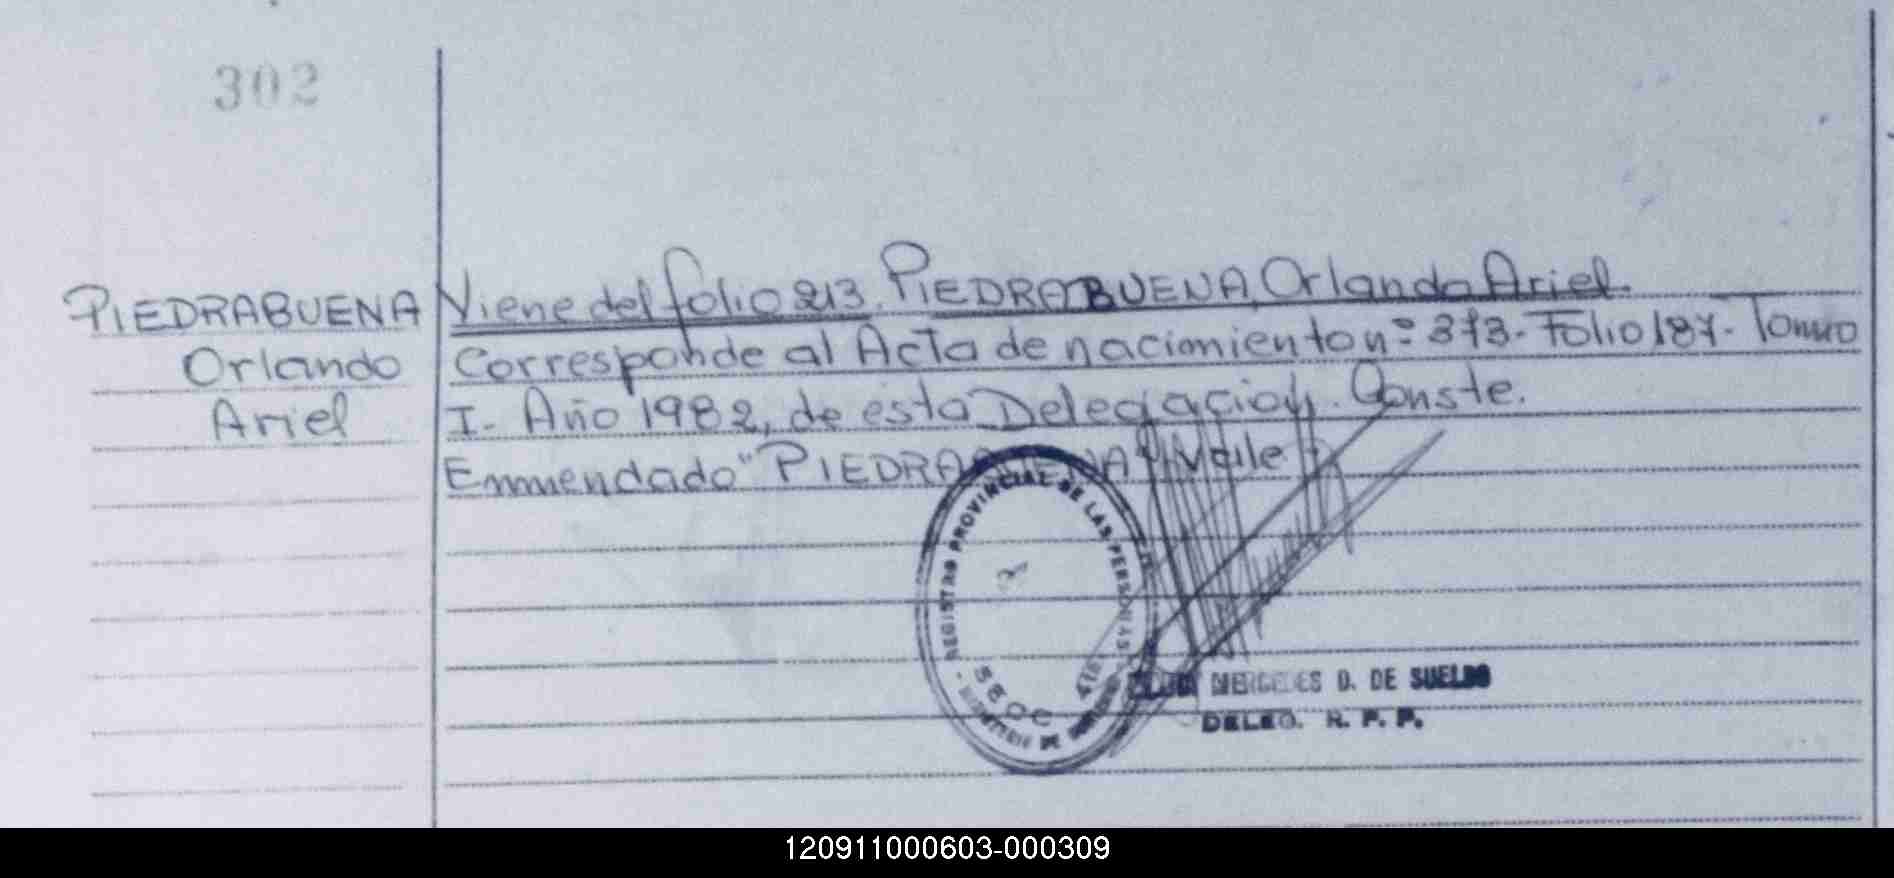 302
PIEDRABUENA
Orlando
Ariel
Viene del folio 213. PIEDRABUENA, Orlando Ariel.
Corresponde al Acta de nacimiento nº 373. Folio 187. Tomo
I. Año 1982, de esta Delegación. Conste.
Enmendado "PIEDRABUENA" Vale.
REGISTRO PROVINCIAL DE LAS PERSONAS
SECC
MERCEDES D. DE SUELDO
DELEG. R. P. P.
120911000603-000309